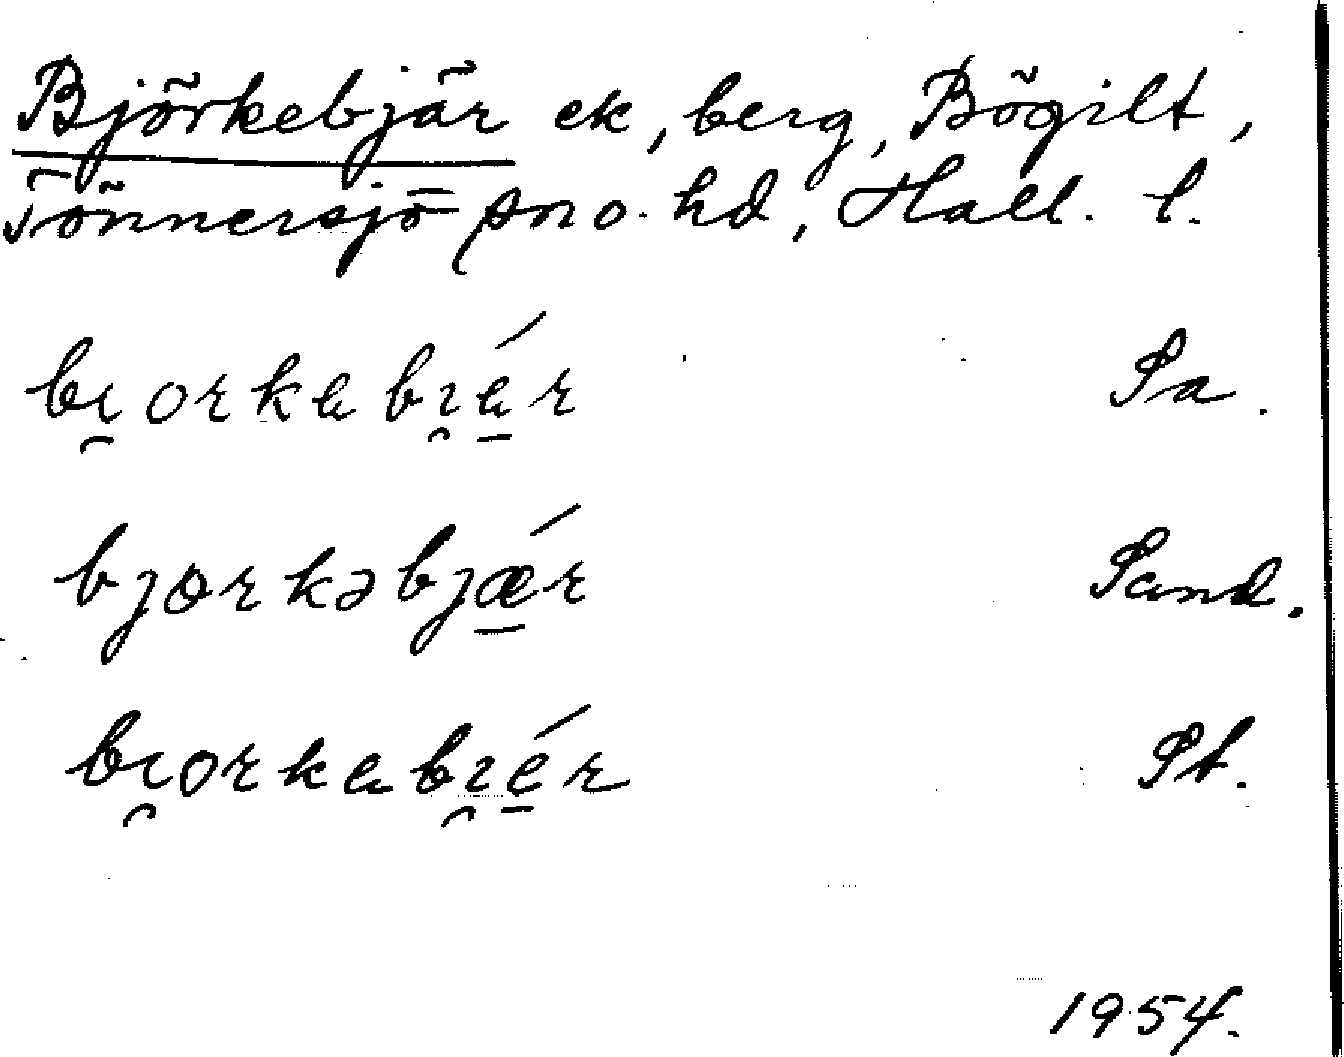 Björkebjär ek, berg, Bögilt,
Tönnersjö sn o. hd, Hall. l.
bi̯orkabi̯ǽr Sa.
bjorkəbjǽr Sand.
bi̯orkabi̯ér St.
1954.